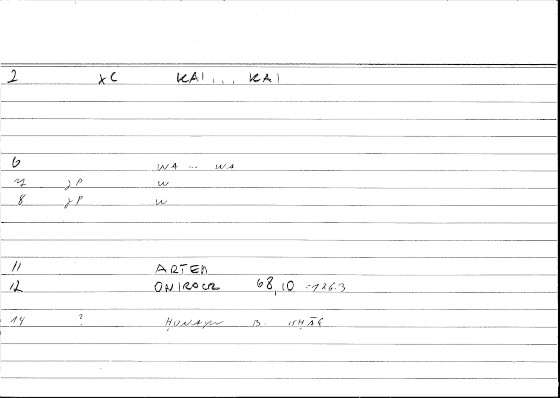 2 xC KAI... KAI
6 WA ... WA
7 JP W
8 JP W
11 ARTEM
12 ONIROCR 68,10 = 126.3
14 ? ḤUNAYN B ISḤĀQ